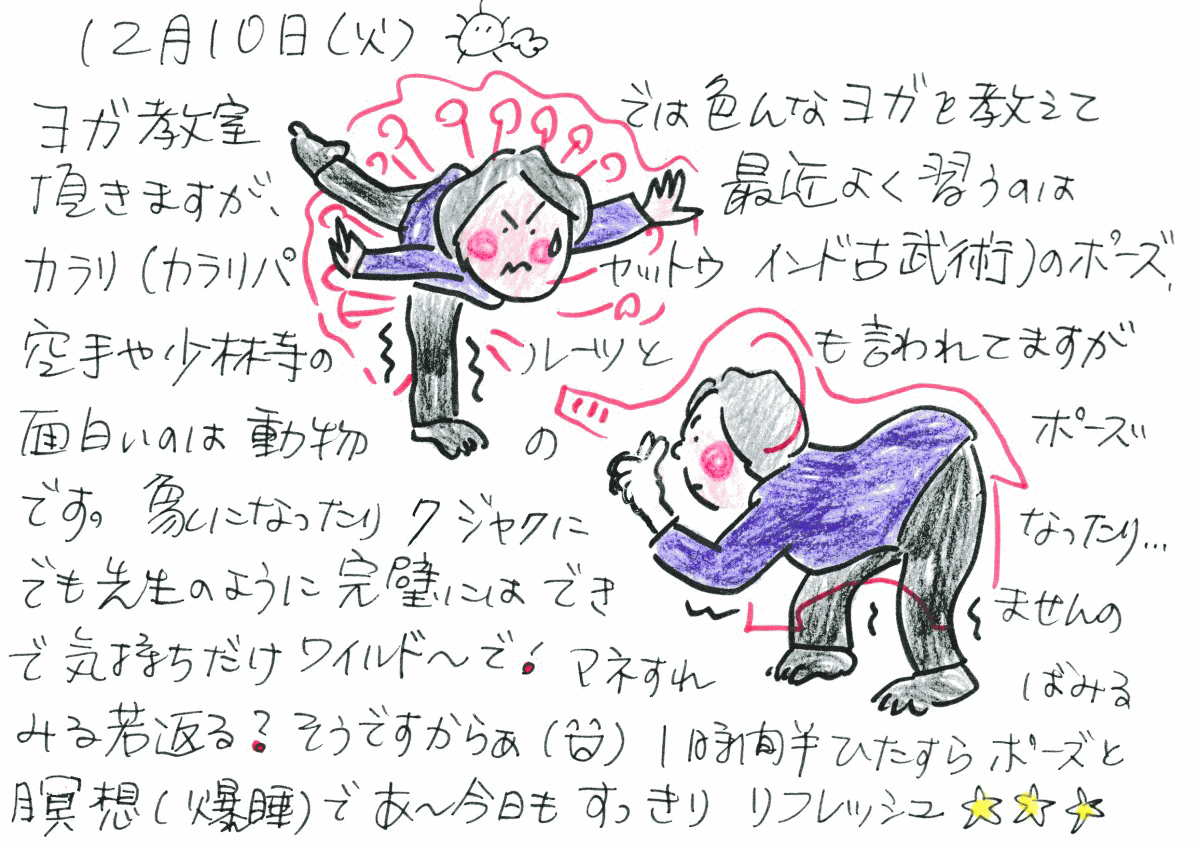 12月10日(火)
ヨガ教室では色んなヨガを教えて
頂きますが、最近よく習うのは
カラリ(カラリパヤットウ インド古武術)のポーズ、
空手や少林寺のルーツとも言われてますが
面白いのは動物のポーズ
です。象になったりクジャクになったり…
でも先生のように完璧にはできませんの
で気持ちだけワイルド〜で!マネすればみる
みる若返る?そうですからぁ(笑)1時間半ひたすらポーズと
瞑想(爆睡)であ〜今日もすっきりリフレッシュ☆☆☆